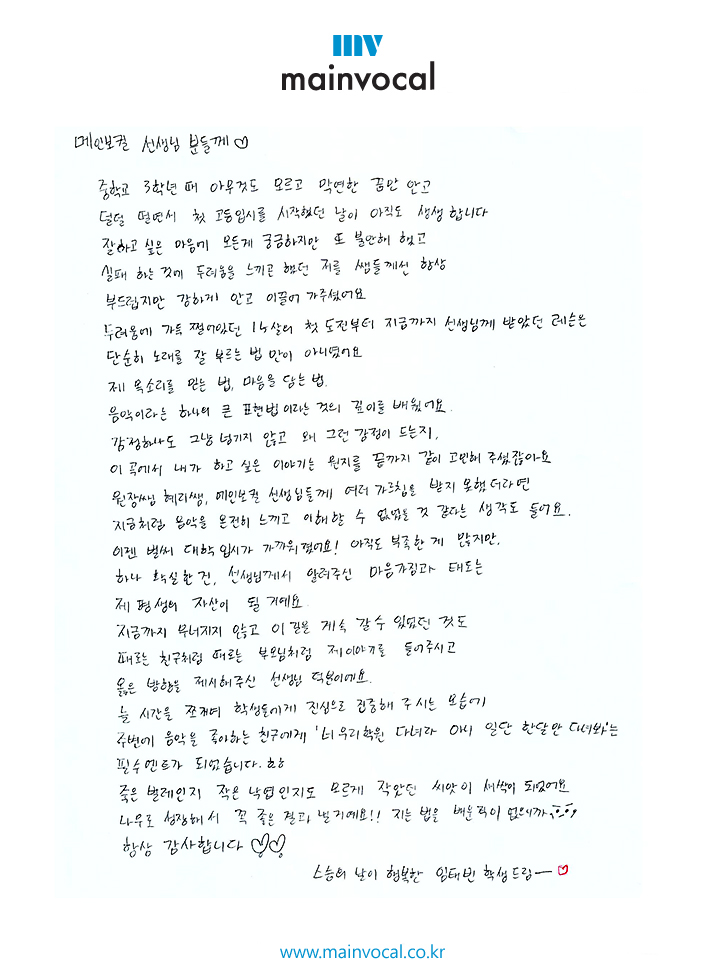 mv
mainvocal
메인보컬 선생님 분들께♡
중학교 3학년 때 아무것도 모르고 막연한 꿈만 안고
덜덜 떨면서 첫 고등입시를 시작했던 날이 아직도 생생합니다
잘하고 싶은 마음에 모든게 궁금하지만 또 불안해 했고
실패 하는 것에 두려움을 느끼곤 했던 저를 쌤들께선 항상
부드럽지만 강하게 안고 이끌어 가주셨어요
두려움에 가득 쩔어있던 16살의 첫 도전부터 지금까지 선생님께 받았던 레슨은
단순히 노래를 잘 부르는 법 만이 아니였어요
제 목소리를 믿는 법, 마음을 담는 법.
음악이라는 하나의 큰 표현법 이라는 것의 깊이를 배웠어요.
감정하나도 그냥 넘기지 않고 왜 그런 감정이 드는지,
이 곡에서 내가 하고 싶은 이야기는 뭔지를 끝까지 같이 고민해 주셨잖아요
원장쌤, 혜리쌤, 메인보컬 선생님들께 여러 가르침을 받지 못했더라면
지금처럼 음악을 온전히 느끼고 이해할 수 없었을 것 같다는 생각도 들어요.
이젠 벌써 대학입시가 가까워졌어요! 아직도 부족한게 많지만,
하나 확실한 건, 선생님께서 알려주신 마음가짐과 태도는
제 평생의 자산이 될 거예요.
지금까지 무너지지 않고 이 길을 계속 갈 수 있었던 것도
때로는 친구처럼 때로는 부모님처럼 제이야기를 들어주시고
옳은 방향을 제시해주신 선생님 덕분이에요.
늘 시간을 쪼개며 학생들에게 진심으로 집중해 주시는 모습에
주변에 음악을 좋아하는 친구에게 '너 우리학원 다녀라 아니 일단 한달만 다녀봐'는
필수멘트가 되었습니다. ㅎㅎ
죽은 벌레인지 작은 낙엽인지도 모르게 작았던 씨앗이 새싹이 되었어요
나무로 성장해서 꼭 좋은 결과 낼거예요!! 지는 법을 배운적이 없으니까
항상 감사합니다 ♡♡
스승의 날이 행복한 임태빈 학생드림ㅡ♡
www.mainvocal.co.kr